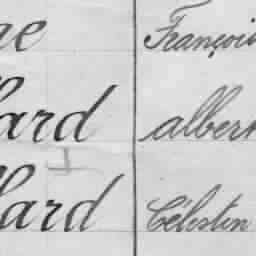 ne François
lard albert
lard Célestin